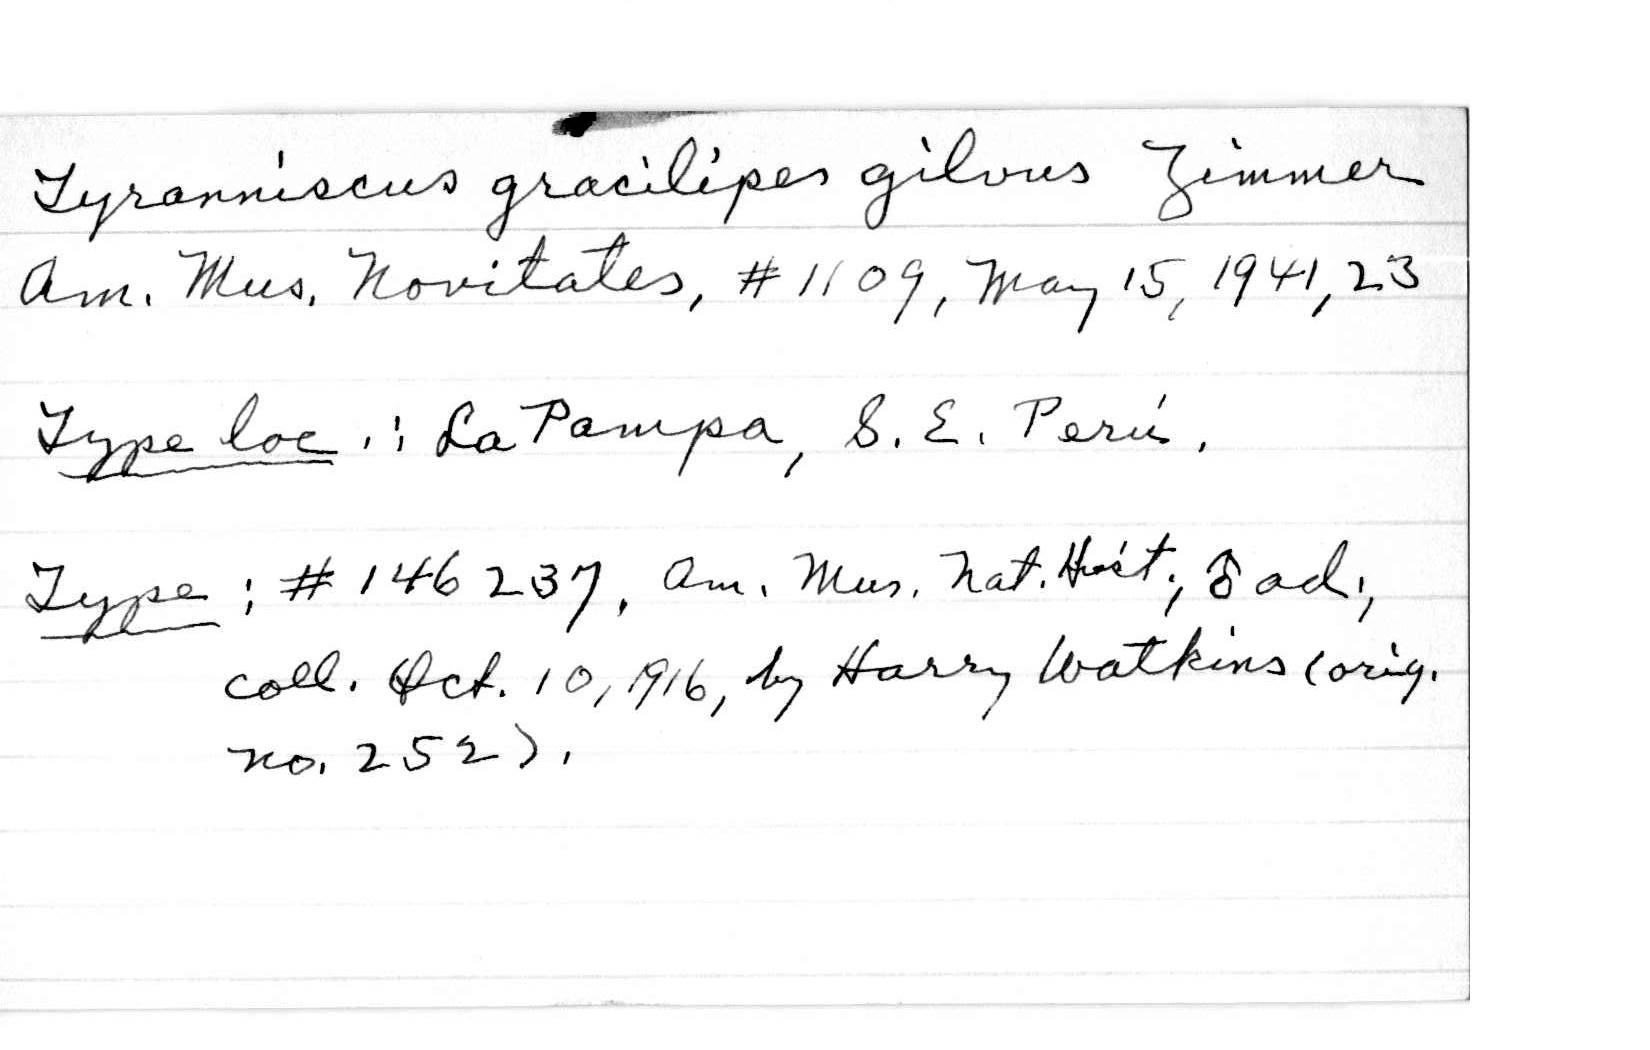 Tyranniscus gracilipes gilvus Zimmer
Am. Mus. Novitates, #1109, May 15, 1941, 23
Type loc.: La Pampa, S. E. Perú.
Type: #146237, Am. Mus. Nat. Hist., ♂ ad.,
coll. Oct. 10, 1916, by Harry Watkins (orig.
no. 252).